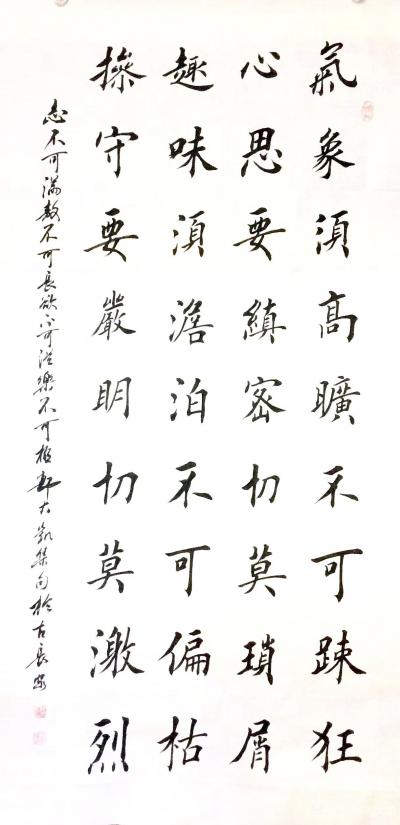 氣象須高曠不可踈狂
心思要縝密切莫瑣屑
趣味須澹泊不可偏枯
操守要嚴明切莫激烈
志不可滿敖不可長欲不可從樂不可極 大凱集句於古長安